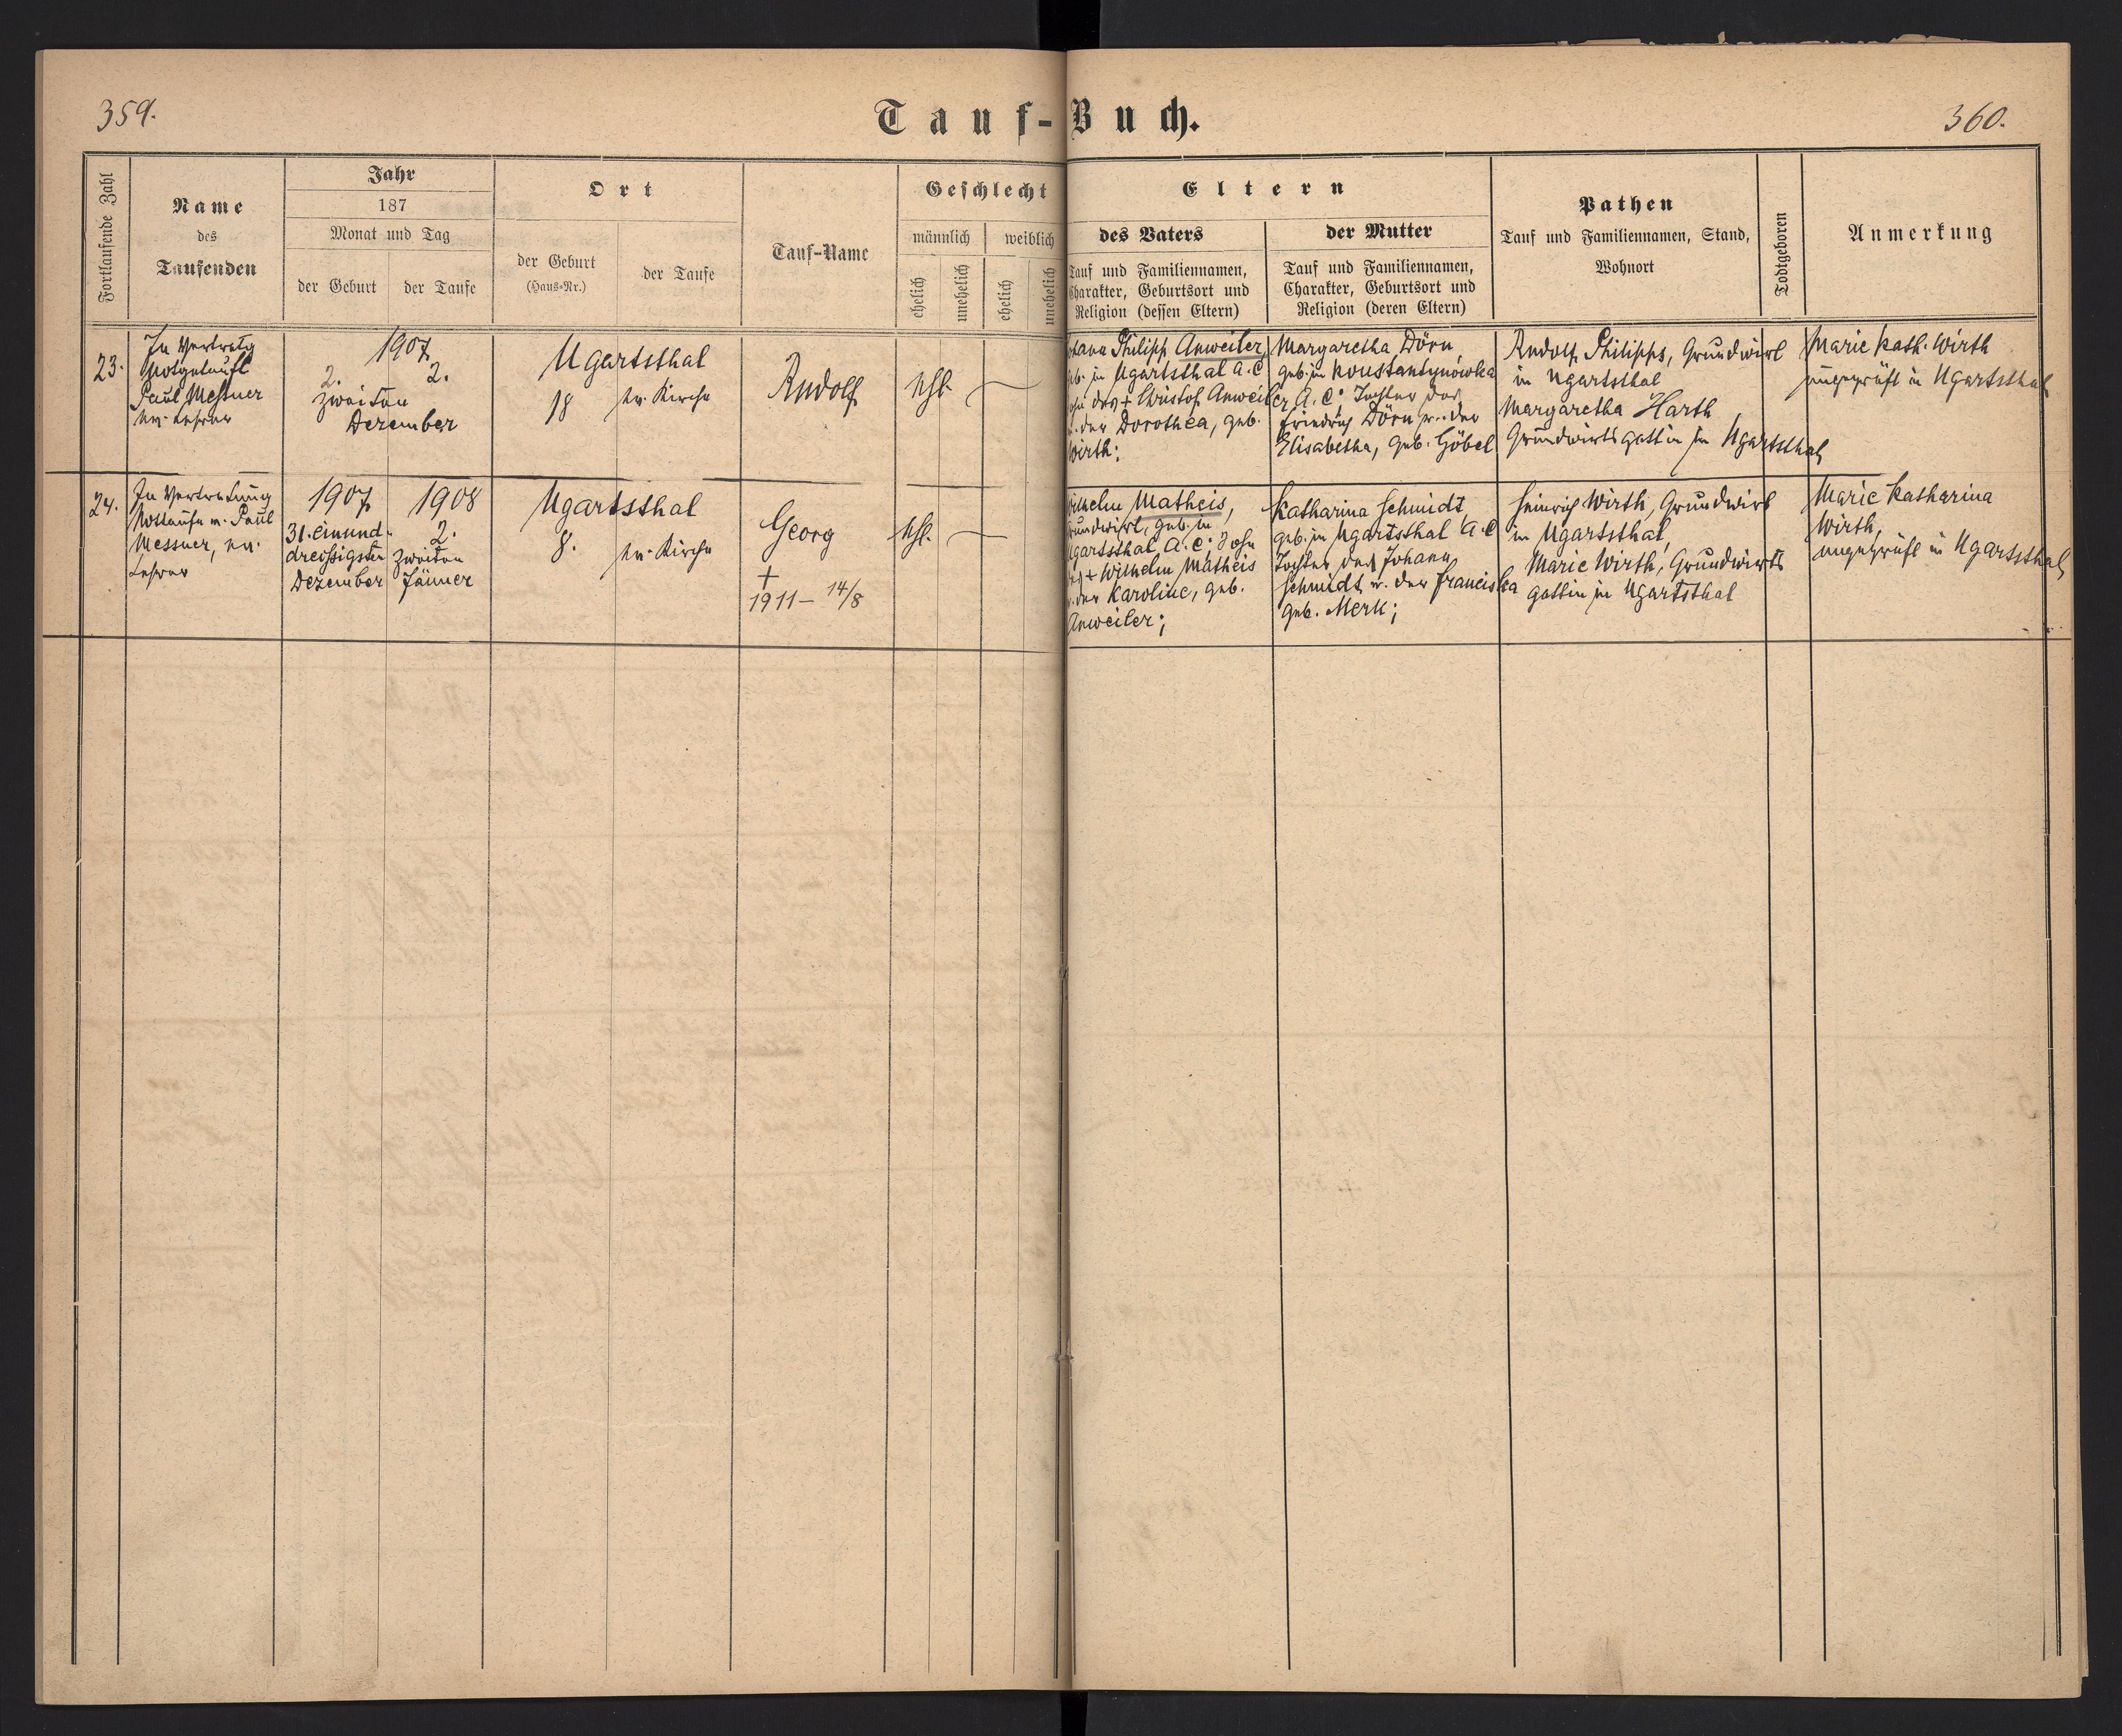 359.
Tauf-Buch.
360.
Fortlaufende Zahl
Name
des
Taufenden
Jahr
187
Monat und Tag
der Geburt
der Taufe
Ort
der Geburt
(Haus-Nr.)
der Taufe
Tauf-Name
Geschlecht
männlich
weiblich
ehelich
unehelich
ehelich
unehelich
Eltern
des Vaters
Tauf und Familiennamen,
Charakter, Geburtsort und
Religion (dessen Eltern)
der Mutter
Tauf und Familiennamen,
Charakter, Geburtsort und
Religion (deren Eltern)
Pathen
Tauf und Familiennamen, Stand,
Wohnort
Todtgeboren
Anmerkung
23.
In Vertretg
Notgetauft
Paul Messner
ev. Lehrer
1907
2.
zweiten
2.
Dezember
Ugartsthal
18
ev. Kirche
Rudolf
ehl.
Johann Philipp Anweiler,
geb. in Ugartsthal A.C.
Sohn des + Christof Anweiler
u. der Dorothea, geb.
Wirth;
Margaretha Dörn,
geb. in Konstantynówka
A.C. Tochter des
Friedrich Dörn u. der
Elisabetha, geb. Göbel
Rudolf Philipps, Grundwirt
in Ugartsthal
Margaretha Harth,
Grundwirtsgattin in Ugartsthal
Marie Kath. Wirth
ungeprüft in Ugartsthal
24.
In Vertretung
Nottaufe v. Paul
Messner, ev.
Lehrer
1907
31. einund-
dreißigster
Dezember
1908
2.
zweiten
Jänner
Ugartsthal
8.
ev. Kirche
Georg
+
1911 – 14/8
ehl.
Wilhelm Matheis,
Grundwirt, geb. in
Ugartsthal, A.C. Sohn
des + Wilhelm Matheis
u. der Karoline, geb.
Anweiler;
Katharina Schmidt,
geb. in Ugartsthal A.C
Tochter des Johann
Schmidt u. der Franciska
geb. Merk;
Heinrich Wirth, Grundwirt
in Ugartsthal,
Marie Wirth, Grundwirts
gattin in Ugartsthal
Marie Katharina
Wirth,
ungeprüft in Ugartsthal